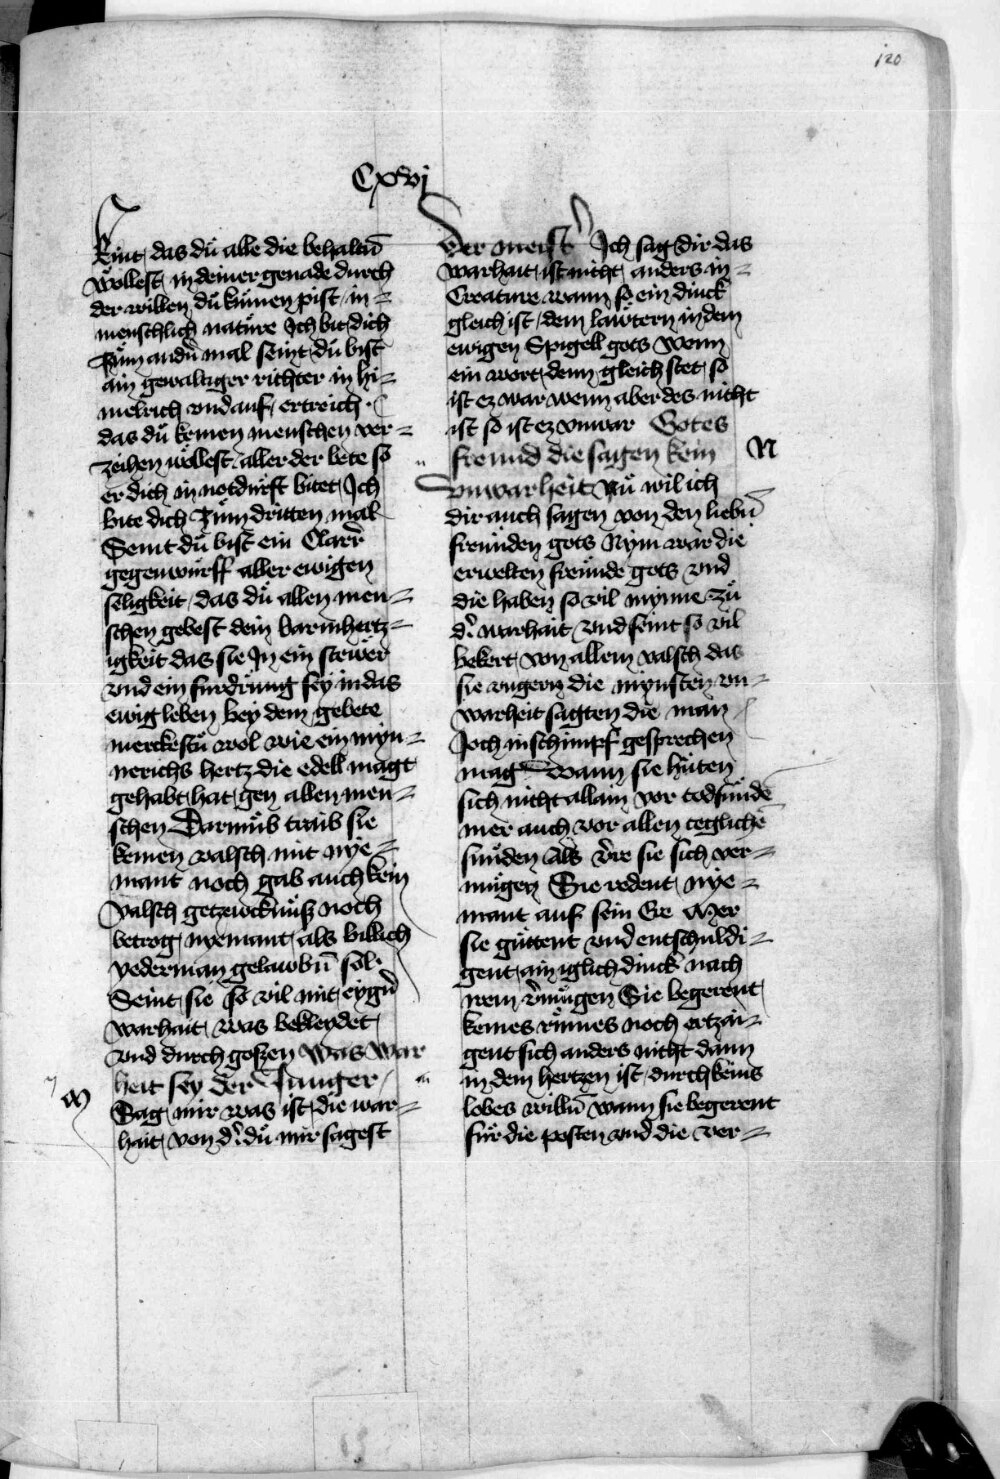 120
Cxvj
Kint das du alle die behaltn̄
wöllest in deiner genade durch
der willen du kumen pist in =
menschlich nature Ich bit dich
zum andn̄ mal seint du bist
ain gewaltiger richter in hi=
melrich vnd auf ertreich
das du keinen menschen ver=
zeihen wöllest aller der bete so
er dich in notdurft bitet Ich
bite dich zum dritten mal
Seint du bist ein Clarer
gegenwurff aller ewigen
seligkeit das du allen men=
schen gebest dein barmhertz=
igkeit das sie In ein stewer
vnd ein furdrung sey in das
ewig leben bey dem gebete
merckestu wol wie ein myn=
nerichs hertz die edell magt
gehabt hat gen allen men=
schen Darumb traib sie
keinen valsch mit nye=
mant noch gab auch kein
valsch getzewcknuß noch
betrog nyemant als billich
yederman gelawbn̄ sol
Seint sie so vil mit eygn̄
warhait was bekleydet
vnd durch goszen Was war
heit sey der Junger
M
Sag mir was ist die war=
hait von d̓ du mir sagest
Der meist̓ Ich sag dir das
warhait ist nicht anders in =
Creature wann so ein dinck
gleich ist dem lawtern in dem
ewigen Spigell gots wenn
ein wort denn gleich stet so
ist ez war wenn aber des nicht
ist so ist ez vnwar Gotes
freund die sagen kein
N
vnwarheit Nu wil ich
dir auch sagen von den liebn̄
freunden gots Nym war die
erwelten freunde gots vnd
die haben so vil mynne zu
d̓ warhait vnd seint so vil
bekert von allem valsch das
sie vngern die mynsten vn=
warheit sagten die man
Joch in schimpf gesprechen
mag Wann sie hüten
sich nicht allain vor todsunde
mer auch vor allen teglichē
sunden Als v̓re sie sich ver=
mugen Sie redent nye=
mant auf sein Ere Mer
sie güttent vnd entschuldi=
gent ain iglich dinck nach
irem v̓mugen Sie begerent
keines rumes noch ertzai=
gent sich anders nicht dann
in dem hertzen ist durch keins
lobes willn̄ wann sie begerent
fur die posten vnd die ver=